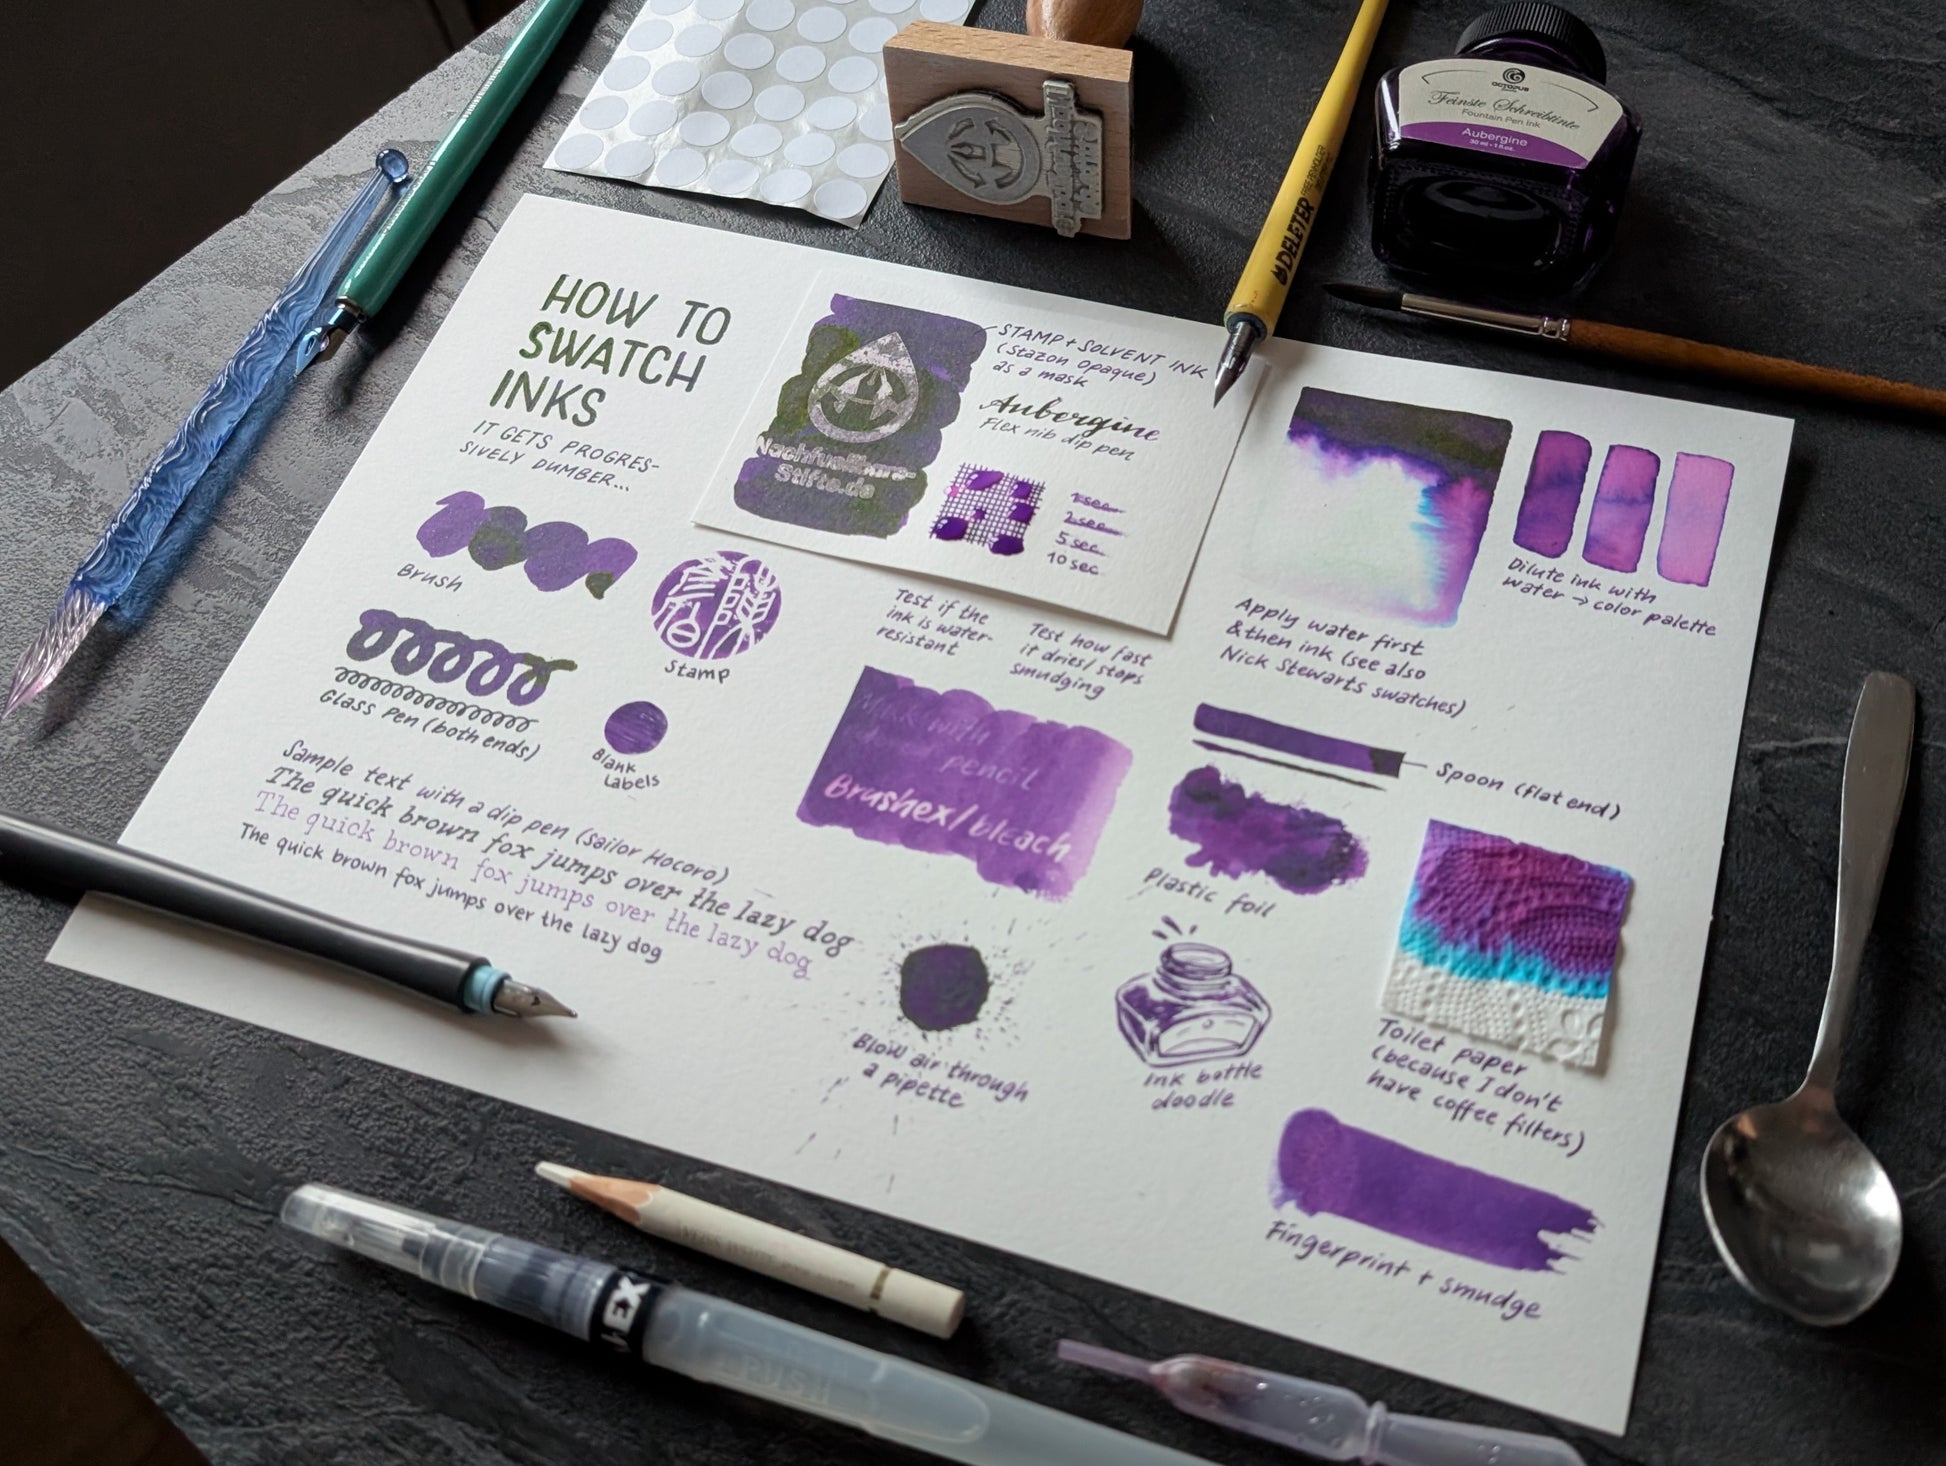 HOW TO
SWATCH
INKS
IT GETS PROGRES-
SIVELY DUMBER...
Brush
Stamp
Glass Pen (both ends)
Blank
Labels
Sample text with a dip pen (Sailor Hocoro)
The quick brown fox jumps over the lazy dog
The quick brown fox jumps over the lazy dog
The quick brown fox jumps over the lazy dog
Nachfuellbare-
Stifte.de
STAMP + SOLVENT INK
(Stazon Opaque)
as a mask
Aubergine
Flex nib dip pen
1 sec
2 sec
5 sec
10 sec
Test if the
ink is water-
resistant
Test how fast
it dries/stops
smudging
pencil
Brushex/bleach
Blow air through
a pipette
Apply water first
& then ink (see also
Nick Stewarts swatches)
Dilute ink with
water → color palette
Spoon (flat end)
Plastic foil
Ink bottle
doodle
Toilet paper
(because I don't
have coffee filters)
Fingerprint + smudge
DELETER
OCTOPUS
Feinste Schreibtinte
Fountain Pen Ink
Aubergine
30 ml - 1 fl oz.
EX